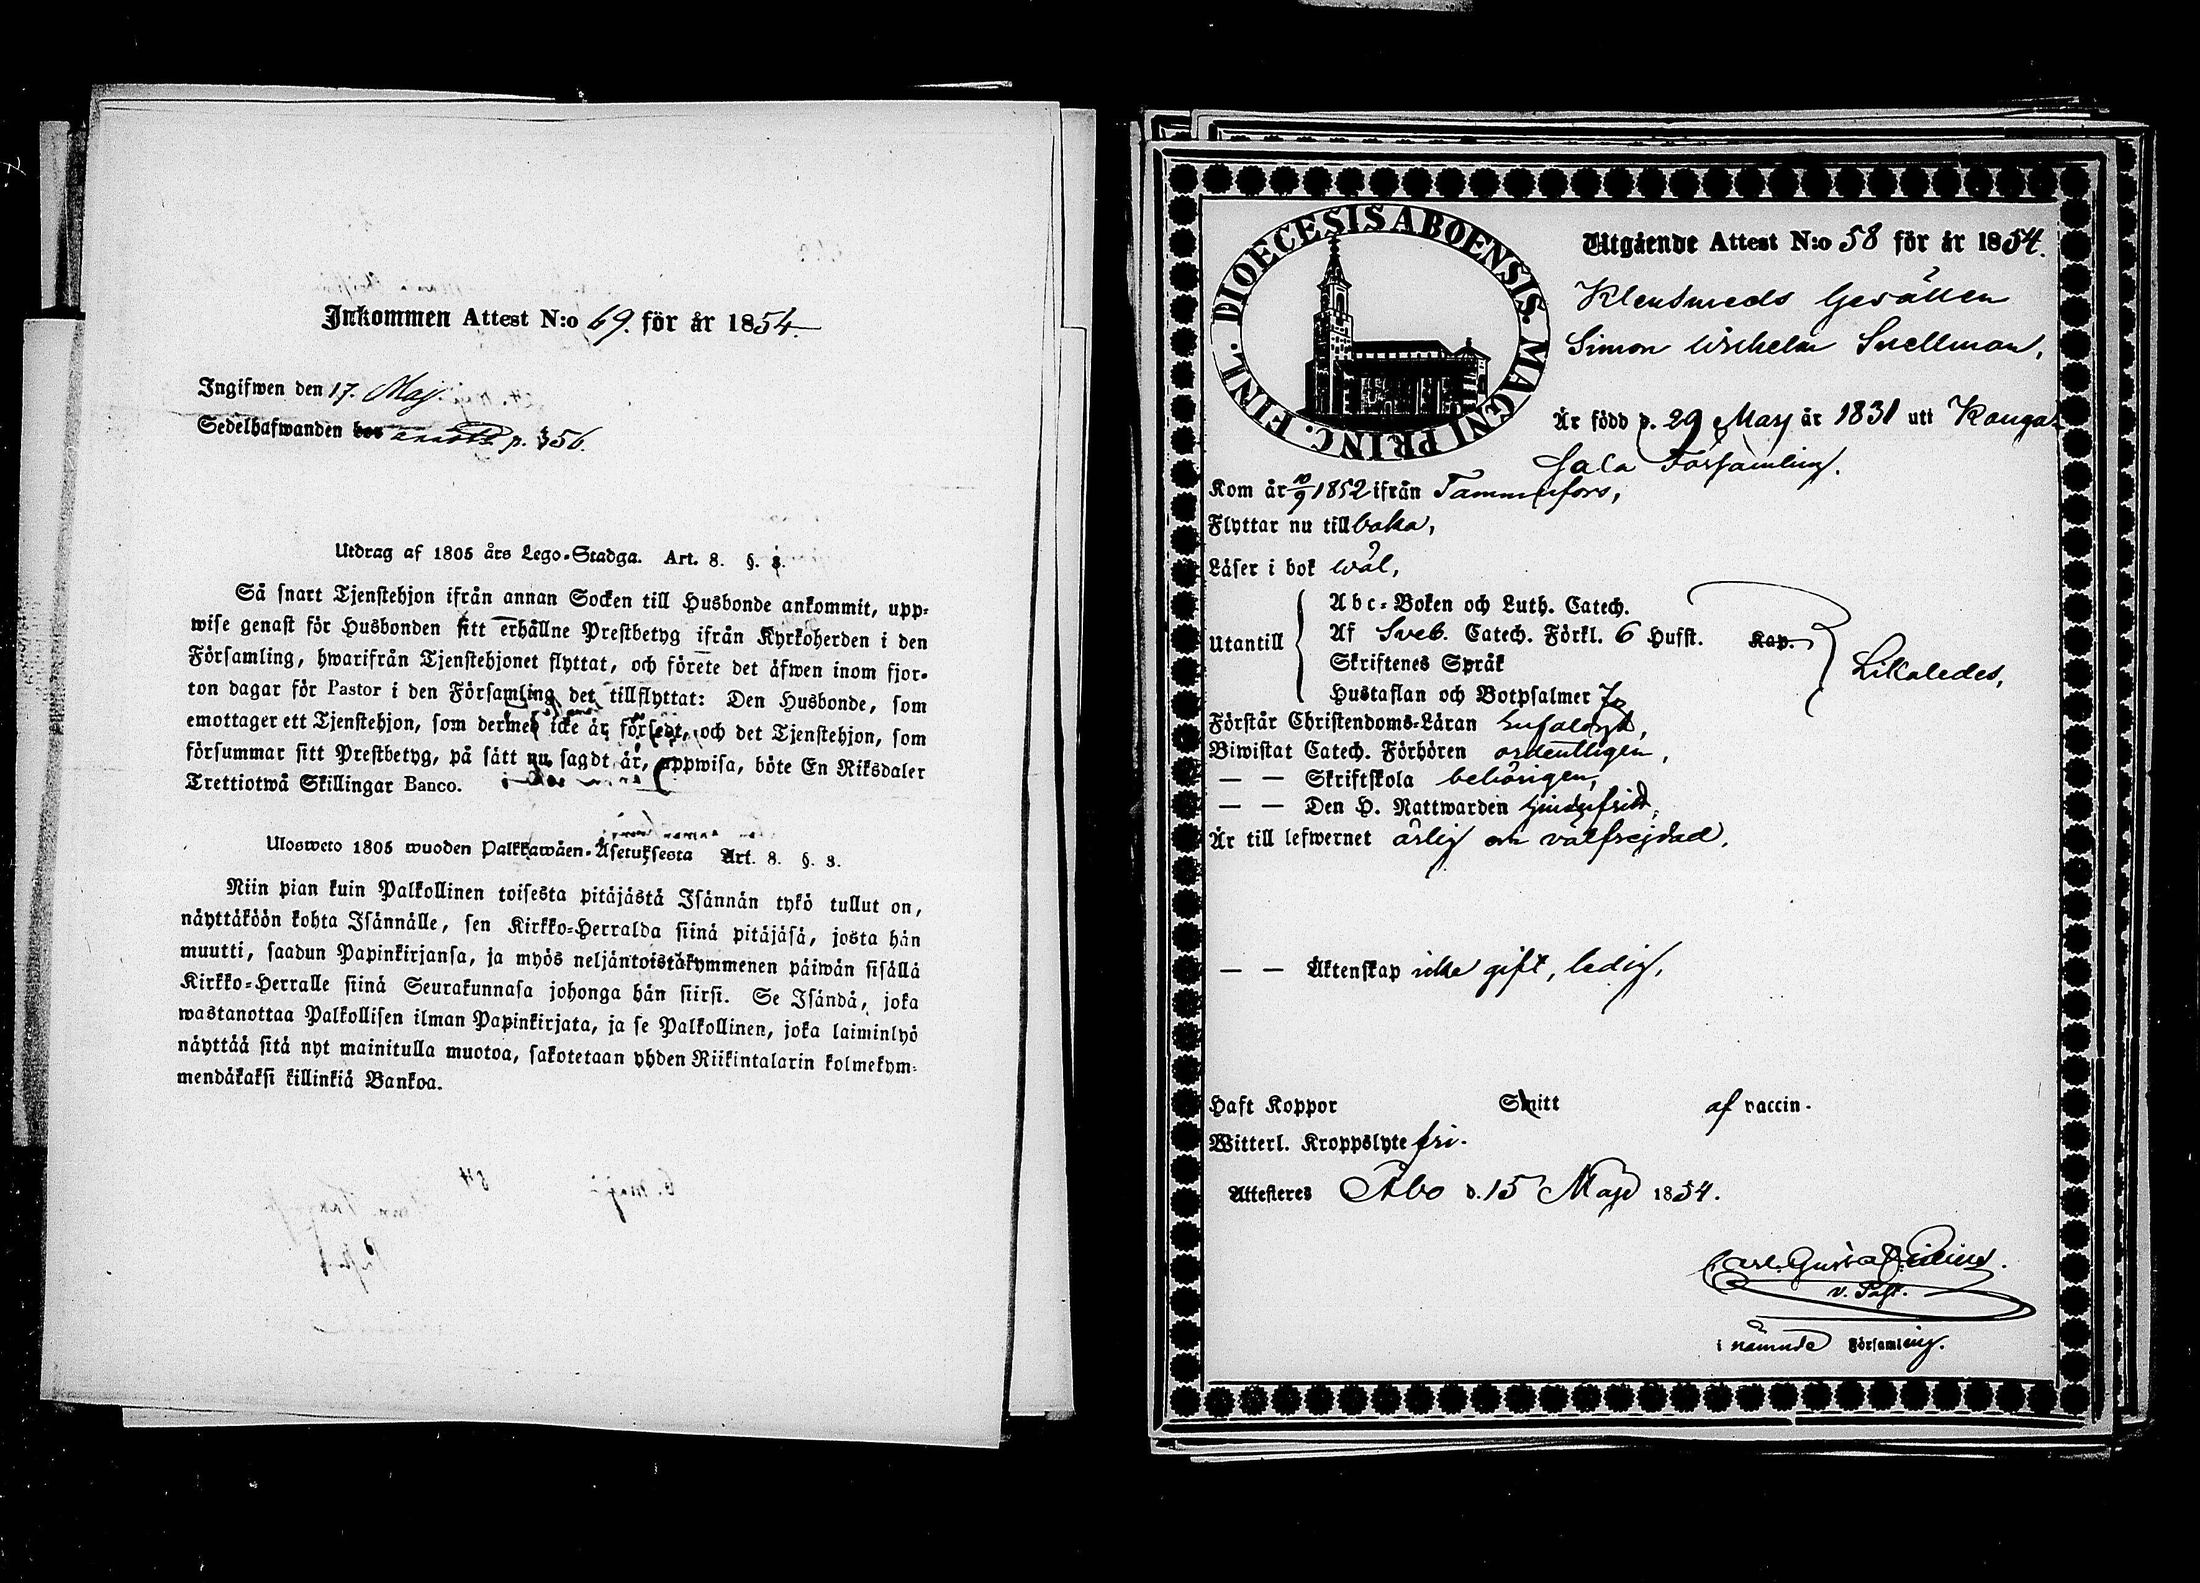 Inkommen Attest N:o 69. för år 1854.
Ingifwen den 17. Maj.
Sedelhafwanden hos p. 356.
Utdrag af 1805 års Lego-Stadga. Art. 8. §. 3.
Så snart Tjenstehjon ifrån annan Socken till Husbonde ankommit, upp-
wise genast för Husbonden sitt erhållne Prestbetyg ifrån Kyrkoherden i den
Församling, hwarifrån Tjenstehjonet flyttat, och förete det äfwen inom fjor-
ton dagar för Pastor i den Församling det tillflyttat: Den Husbonde, som
emottager ett Tjenstehjon, som dermed icke är försedt, och det Tjenstehjon, som
försummar sitt Prestbetyg, på sätt nu sagdt är, uppwisa, böte En Riksdaler
Trettiotwå Skillingar Banco.
Ulosweto 1805 wuoden Palkkawäen-Asetuksesta Art. 8. §. 3.
Niin pian kuin Palkollinen toisesta pitäjästä Isännän tykö tullut on,
näyttäköön kohta Isännälle, sen Kirkko-Herralda siinä pitäjäsä, josta hän
muutti, saadun Papinkirjansa, ja myös neljäntoistakymmenen päiwän sisällä
Kirkko-Herralle siinä Seurakunnasa johonga hän siirsi. Se Isändä, joka
wastanottaa Palkollisen ilman Papinkirjata, ja se Palkollinen, joka laiminlyö
näyttää sitä nyt mainitulla muotoa, sakotetaan yhden Riikintalarin kolmekym-
mendäkaksi killinkiä Bankoa.
DIOECESIS ABOENSIS. MAGNI PRINC. FINL.
Utgående Attest N:o 58 för år 1854.
Klensmeds Gesällen
Simon Wilhelm Snellman,
Är född d. 29 Maj år 1831 uti Kanga-
sala Församling.
Kom år 10/9 1852 ifrån Tammerfors,
Flyttar nu tillbaka,
Läser i bok wäl,
Utantill
Abc-Boken och Luth. Catech.
Af Sveb. Catech. Förkl. 6 Hufst. Kap.
Skriftenes Språk
Hustaflan och Botpsalmer 7
Likaledes,
Förstår Christendoms-Läran enfaldigt,
Biwistat Catech. Förhören ordentligen,
— — Skriftskola behörigen,
— — Den H. Nattwarden
Är till lefwernet ärlig och välfrejdad,
— — Äktenskap icke gift, ledig,
Haft Koppor Smitt af vaccin.
Witterl. Kroppslyte fri.
Attesteres Åbo d. 15 Maji 1854.
Carl Gustaf
v. Past.
i nämnde Församling.